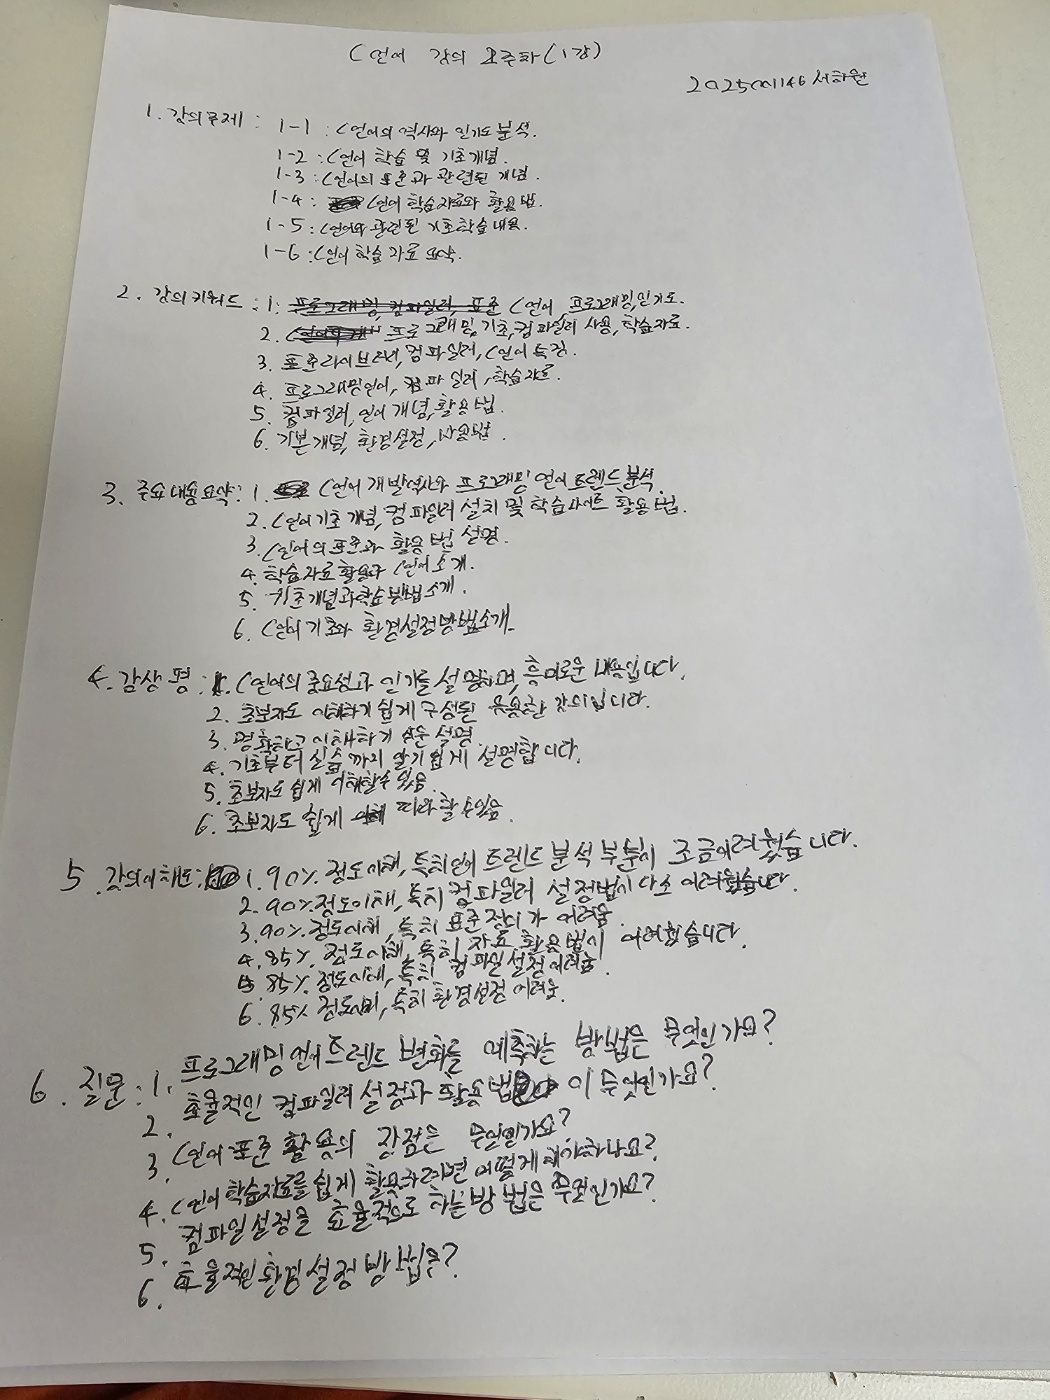 C언어 강의 요주차(1강)
202500146 서하원
1. 강의주제 : 1-1 : C언어의 역사와 인기도 분석.
1-2 : C언어 학습 및 기초개념.
1-3 : C언어의 표준과 관련된 개념.
1-4 : C언어 학습자료와 활용법.
1-5 : C언어와 관련된 기초학습내용.
1-6 : C언어 학습 자료 요약.
2. 강의 키워드 : 1. C언어 프로그래밍, 인기도.
2. 프로그래밍, 기초, 컴파일러 사용, 학습자료.
3. 표준라이브러리, 컴파일러, C언어 특징.
4. 프로그래밍언어, 컴파일러, 학습자료.
5. 컴파일러, 언어 개념, 활용법.
6. 기본개념, 환경설정, 사용법.
3. 주요내용요약 : 1. C언어 개발역사와 프로그래밍 언어 트렌드 분석.
2. C언어 기초 개념, 컴파일러 설치 및 학습사이트 활용법.
3. C언어의 표준과 활용법 설명.
4. 학습자료활용과 C언어 소개.
5. 기초개념과학습방법소개.
6. C언어 기초와 환경설정방법소개.
4. 감상평 : 1. C언어의 중요성과 인기를 설명하며, 흥미로운 내용입니다.
2. 초보자도 이해하기 쉽게 구성된 유용한 강의입니다.
3. 명확하고 이해하기 쉬운 설명
4. 기초부터 실습까지 알기쉽게 설명합니다.
5. 초보자도 쉽게 이해할수있음.
6. 초보자도 쉽게 따라할수있음
5. 강의이해도 : 1. 90% 정도이해, 특히언어 트렌드 분석 부분이 조금어려웠습니다.
2. 90%정도이해, 특히 컴파일러 설정법이 다소 어려웠습니다.
3. 90% 정도이해, 특히 표준 정의가 어려움
4. 85% 정도이해, 특히 자료 활용법이 어려웠습니다.
5. 85% 정도이해, 특히 컴파일 설정어려움.
6. 85% 정도이해, 특히 환경설정 어려움.
6. 질문 : 1. 프로그래밍언어트렌드 변화를 예측하는 방법은 무엇인가요?
2. 효율적인 컴파일러 설정과 활용법이 무엇인가요?
3. C언어 표준 활용의 장점은 무엇인가요?
4. C언어 학습자료를 쉽게 활용하려면 어떻게 해야하나요?
5. 컴파일설정을 효율적으로 하는방법은 무엇인가요?
6. 효율적인 환경 설정 방법은?